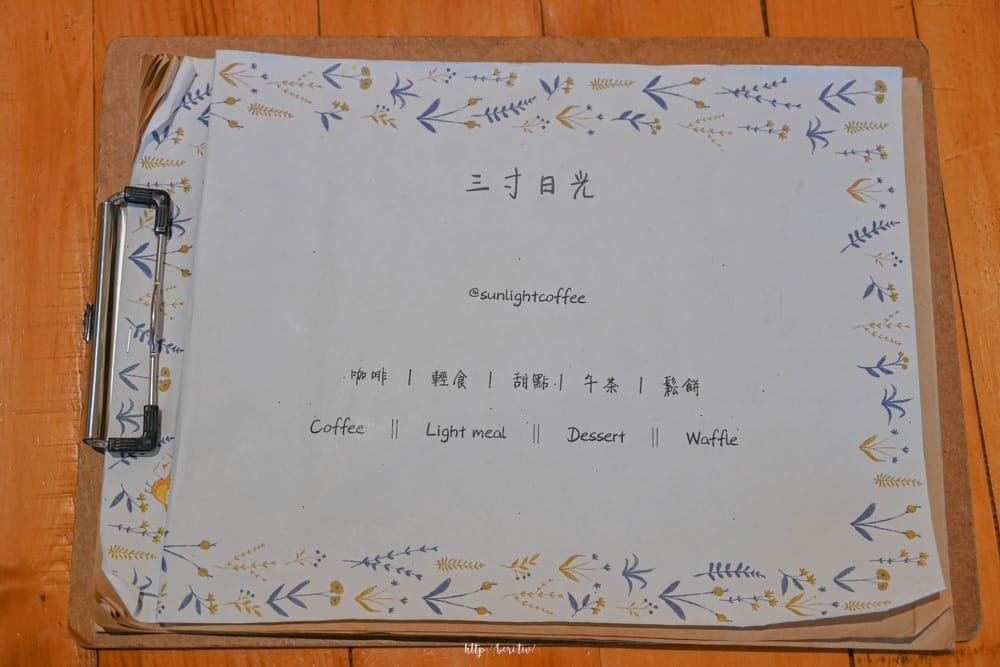 三寸日光
@sunlightcoffee
咖啡 | 輕食 | 甜點 | 午茶 | 鬆餅
Coffee || Light meal || Dessert || Waffle
http://beri.tw/